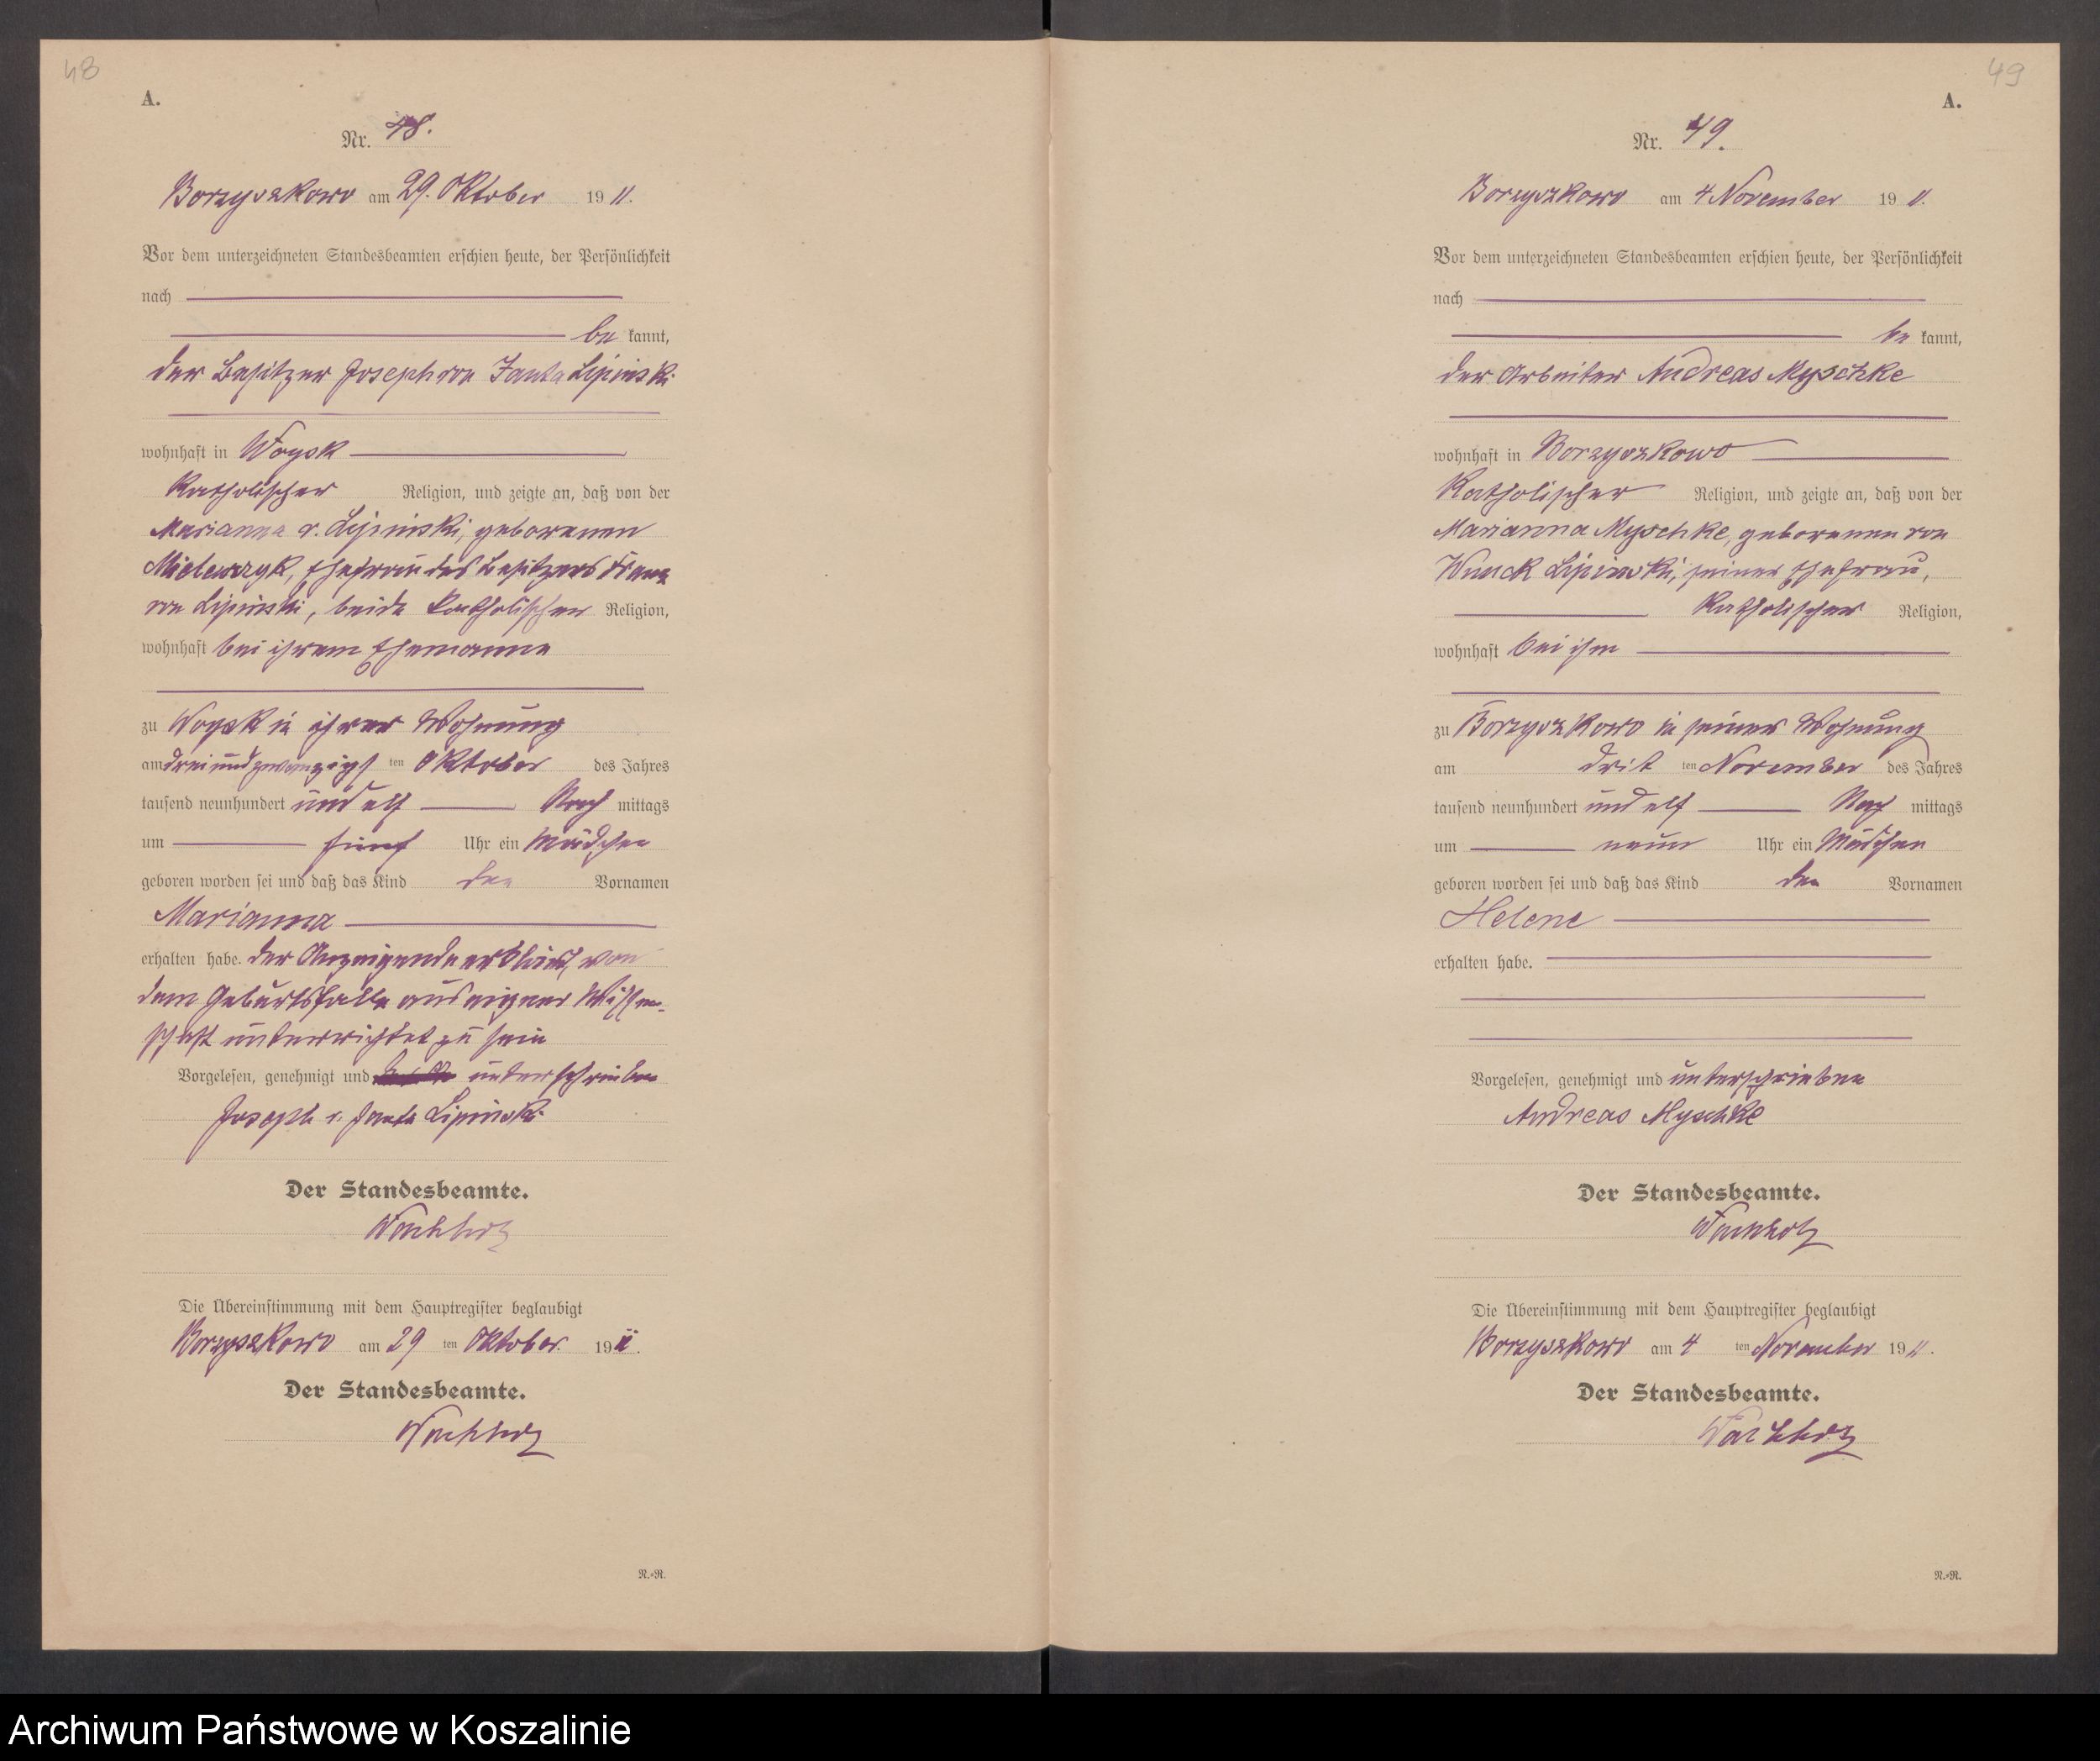 48
A.
Nr. 48.
Borzyszkowo am 29. Oktober 1911.
Vor dem unterzeichneten Standesbeamten erschien heute, der Persönlichkeit
nach
be kannt,
der Besitzer Joseph von Janta Lipinski
wohnhaft in Woysk
katholischer Religion, und zeigte an, daß von der
Marianna v. Lipinski, geborenen
Mielewczyk, Ehefrau des Besitzers Franz
von Lipinski, beide katholischer Religion,
wohnhaft bei ihrem Ehemanne
zu Woysk in ihrer Wohnung
am dreiundzwanzigs ten Oktober des Jahres
tausend neunhundert und elf Nach mittags
um fünf Uhr ein Mädchen
geboren worden sei und daß das Kind den Vornamen
Marianna
erhalten habe. der Anzeigende erklärt, von
dem Geburtsfalle aus eigener Wissen-
schaft unterrichtet zu sein
Vorgelesen, genehmigt und unterschrieben
Joseph v. Janta Lipinski
Der Standesbeamte.
Wachholz
Die Übereinstimmung mit dem Hauptregister beglaubigt
Borzyszkowo am 29 ten Oktober 1911.
Der Standesbeamte.
Wachholz
N.-R.
49
A.
Nr. 49.
Borzyszkowo am 4 November 1911.
Vor dem unterzeichneten Standesbeamten erschien heute, der Persönlichkeit
nach
be kannt,
der Arbeiter Andreas Myschke
wohnhaft in Borzyszkowo
katholischer Religion, und zeigte an, daß von der
Marianna Myschke, geborenen von
Wnuck Lipinski, seiner Ehefrau,
katholischer Religion,
wohnhaft bei ihm
zu Borzyszkowo in seiner Wohnung
am drit ten November des Jahres
tausend neunhundert und elf Nach mittags
um neun Uhr ein Mädchen
geboren worden sei und daß das Kind den Vornamen
Helene
erhalten habe.
Vorgelesen, genehmigt und unterschrieben
Andreas Myschke
Der Standesbeamte.
Wachholz
Die Übereinstimmung mit dem Hauptregister beglaubigt
Borzyszkowo am 4 ten November 1911.
Der Standesbeamte.
Wachholz
N.-R.
Archiwum Państwowe w Koszalinie